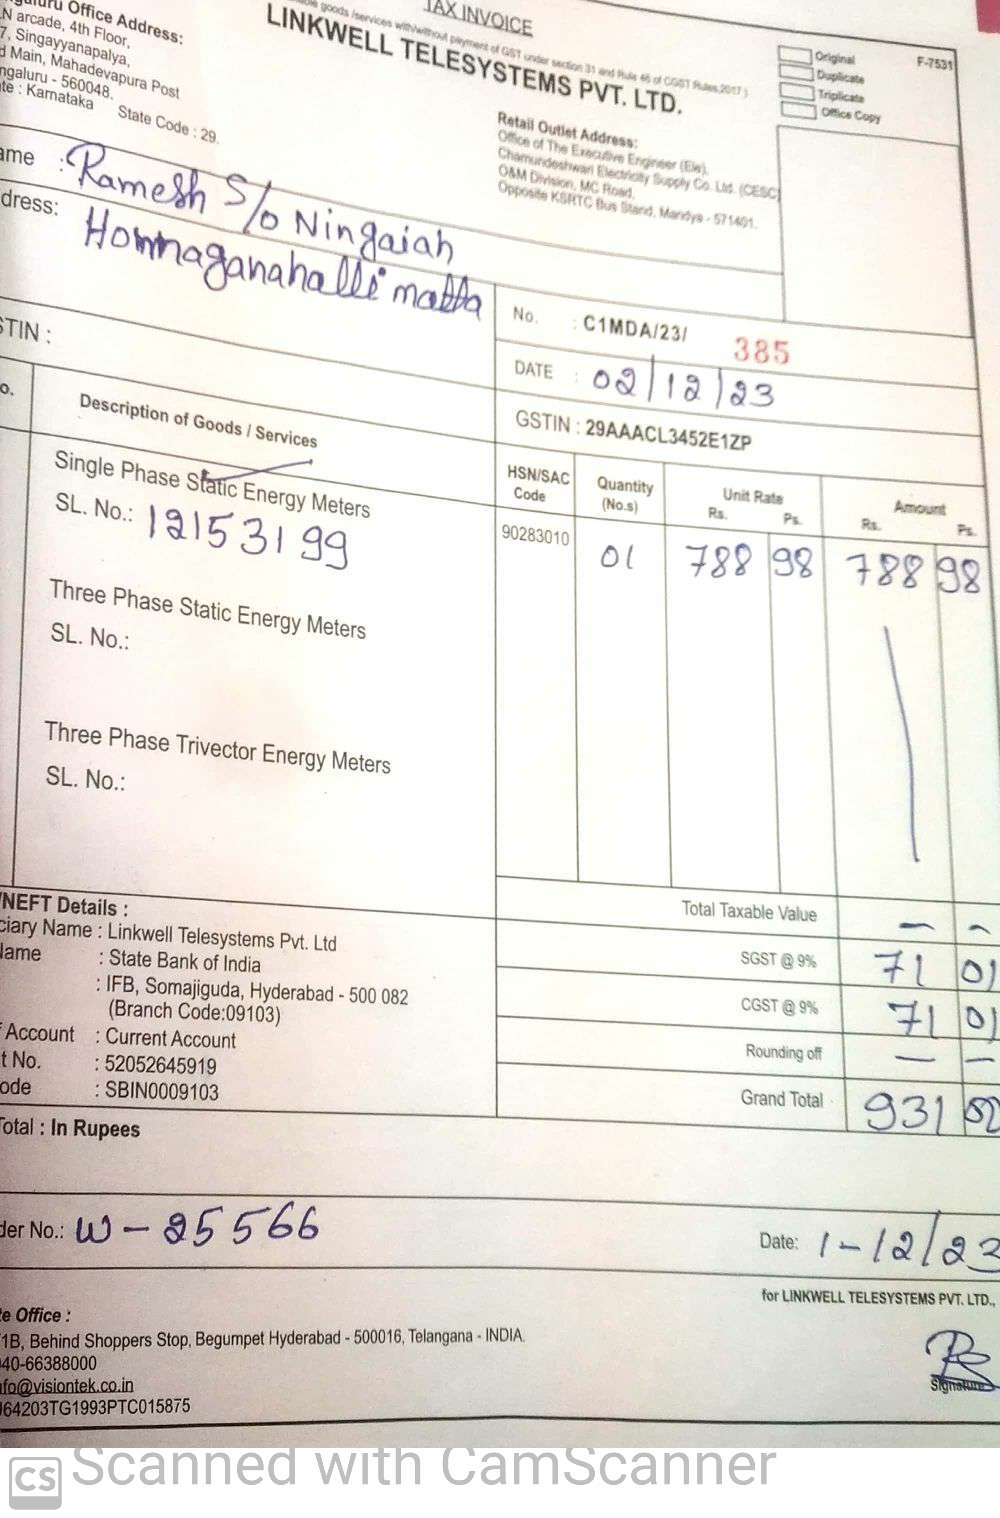 TAX INVOICE
goods /services with/without payment of GST under section 31 and Rule 46 of CGST Rules, 2017 )
LINKWELL TELESYSTEMS PVT. LTD.
Office Address:
N arcade, 4th Floor,
7, Singayyanapalya,
Main, Mahadevapura Post
ngaluru - 560048.
te : Karnataka State Code : 29.
Retail Outlet Address:
Office of The Executive Engineer (Ele),
Chamundeshwari Electricity Supply Co. Ltd. (CESC)
O&M Division, MC Road,
Opposite KSRTC Bus Stand, Mandya - 571401.
Original F-7531
Duplicate
Triplicate
Office Copy
ame : Ramesh S/o Ningaiah
dress: Honnaganahalli matta
No. : C1MDA/23/ 385
DATE : 02/12/23
STIN :
GSTIN : 29AAACL3452E1ZP
o. Description of Goods / Services HSN/SAC Code Quantity (No.s) Unit Rate Rs. Ps. Amount Rs. Ps.
Single Phase Static Energy Meters
SL. No.: 12153199 90283010 01 788 98 788 98
Three Phase Static Energy Meters
SL. No.:
Three Phase Trivector Energy Meters
SL. No.:
Total Taxable Value — –
SGST @ 9% 71 01
CGST @ 9% 71 01
Rounding off — –
Grand Total 931
/NEFT Details :
ciary Name : Linkwell Telesystems Pvt. Ltd
Name : State Bank of India
: IFB, Somajiguda, Hyderabad - 500 082
(Branch Code:09103)
Account : Current Account
t No. : 52052645919
ode : SBIN0009103
Total : In Rupees
der No.: W-25566 Date: 1-12/23
for LINKWELL TELESYSTEMS PVT. LTD.,
Signature
te Office :
1B, Behind Shoppers Stop, Begumpet Hyderabad - 500016, Telangana - INDIA.
40-66388000
nfo@visiontek.co.in
J64203TG1993PTC015875
CS Scanned with CamScanner